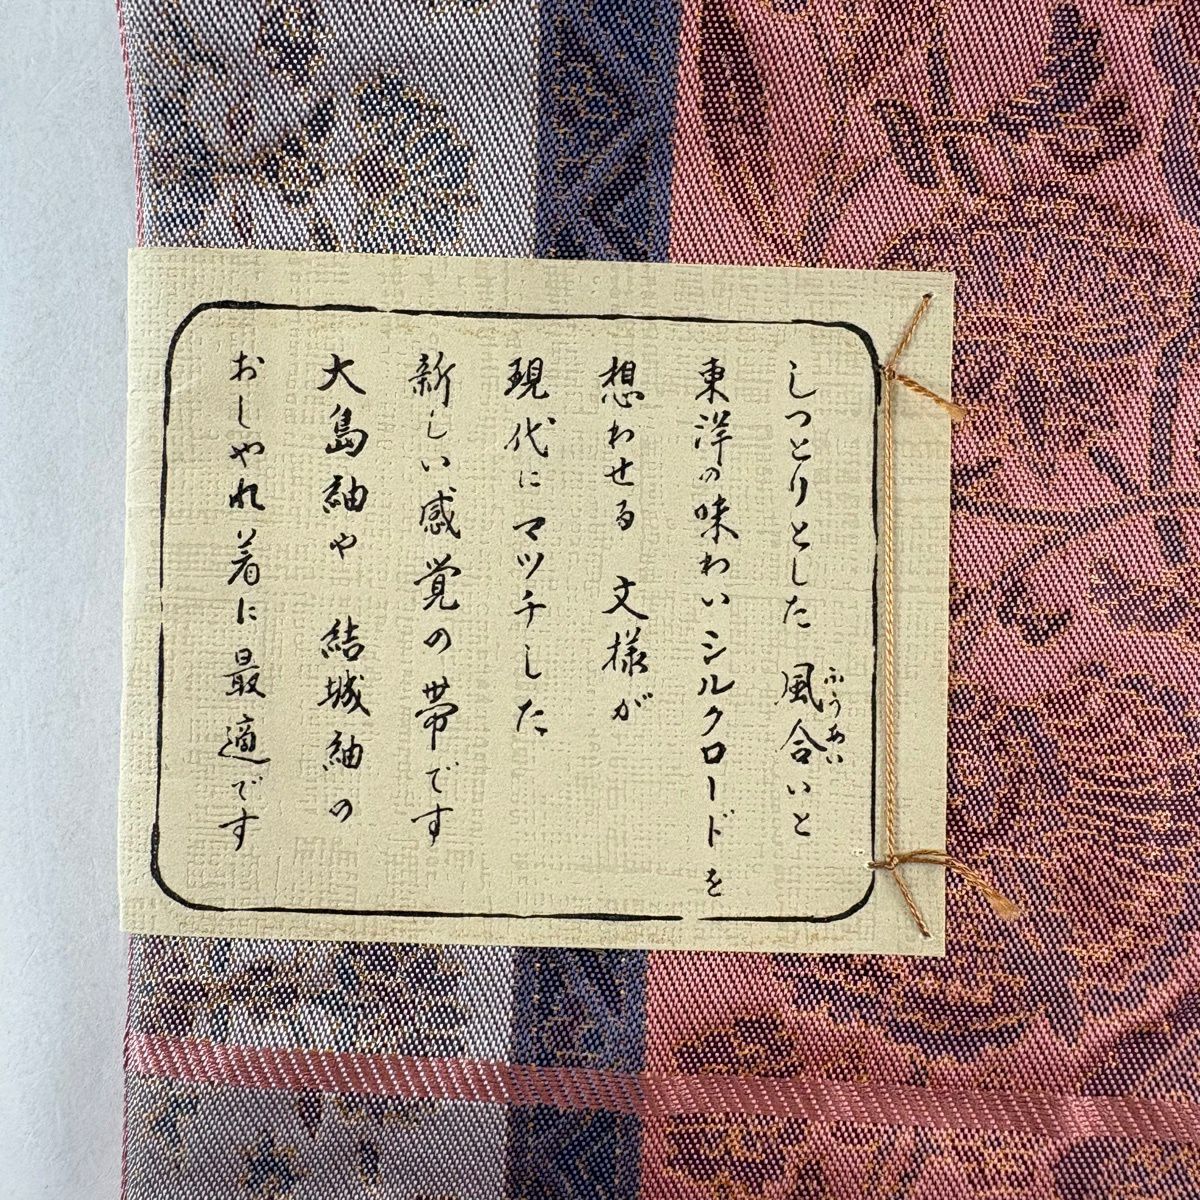 しっとりとした 風合いと
ふうあい
東洋の味わいシルクロードを
想わせる 文様が
現代にマッチした
新しい感覚の帯です
大島紬や 結城紬の
おしゃれ着に最適です